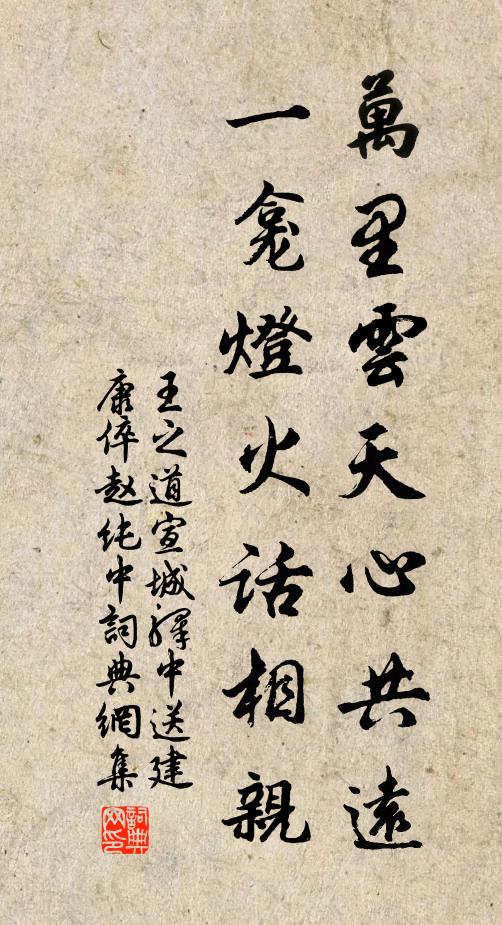 萬里雲天心共遠
一龕燈火話相親
王之道宣城驛中送建
康倅赵纯中詞典網集
詞典
网印